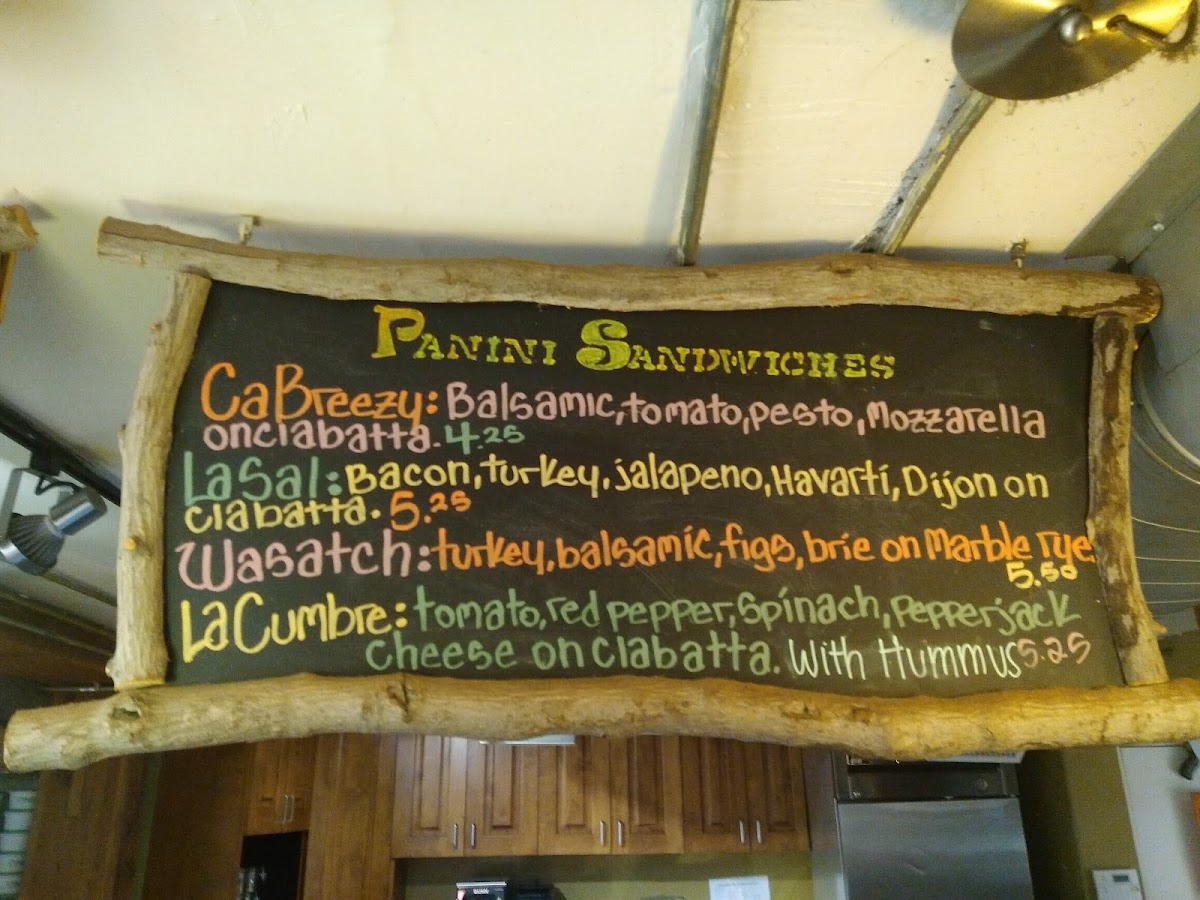 PANINI SANDWICHES
CaBreezy: Balsamic, tomato, pesto, Mozzarella
on ciabatta. 4.25
LaSal: Bacon, turkey, jalapeno, Havarti, Dijon on
ciabatta. 5.25
Wasatch: turkey, balsamic, figs, brie on Marble rye
5.50
LaCumbre: tomato, red pepper, spinach, pepperjack
cheese on ciabatta. With Hummus 5.25